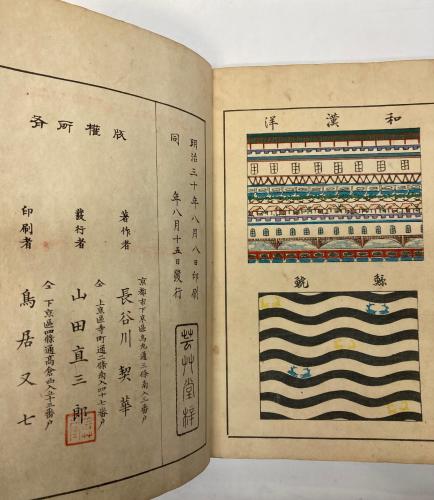 和漢洋
明治三十年八月八日印刷
同 年八月十五日發行
芸艸堂梓
版權所有
京都市下京區烏丸通三條南入三番戶
著作者 長谷川契華
仝 上京區寺町通二條南入四十七番戶
發行者 山田直三郎
仝 下京區四條通高倉西入五十三番戶
印刷者 鳥居又七